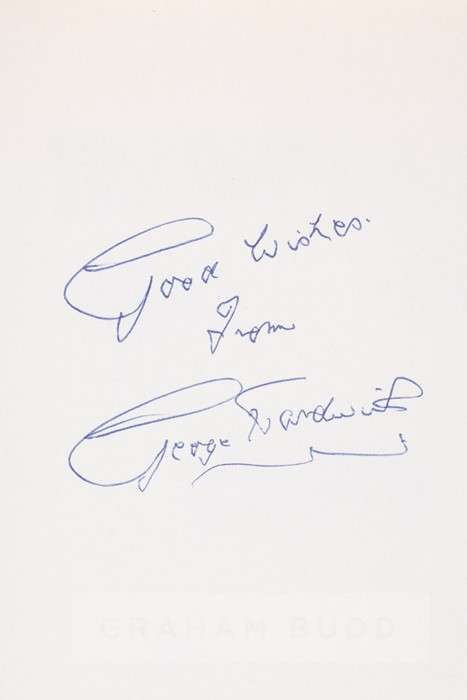 Good Wishes.
From
George Hardwick
GRAHAM BUDD